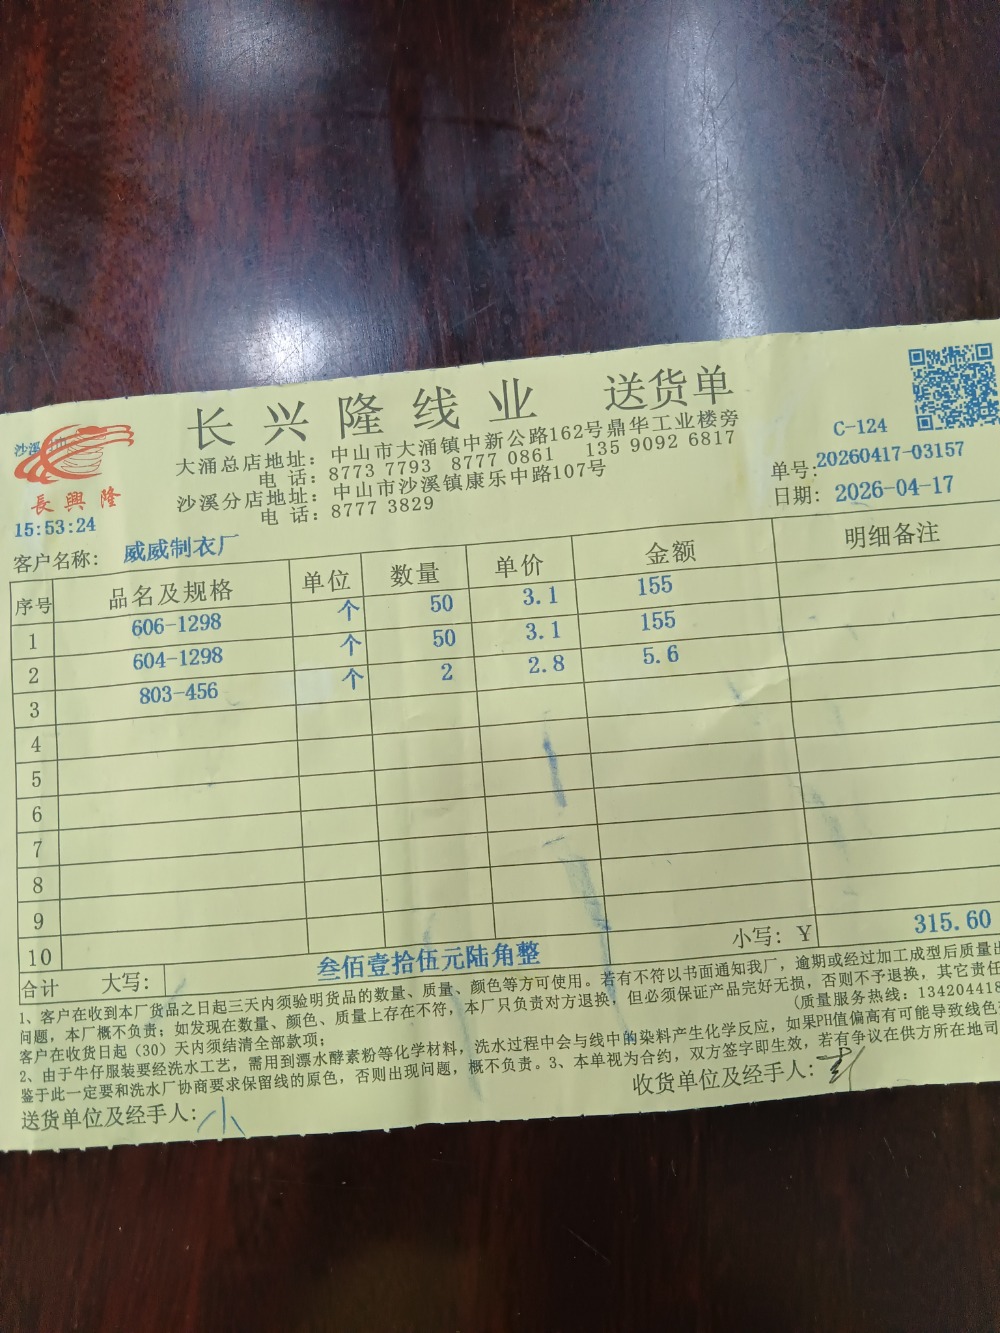 长兴隆线业 送货单
大涌总店地址：中山市大涌镇中新公路162号鼎华工业楼旁
电 话：8773 7793 8777 0861 135 9092 6817
沙溪分店地址：中山市沙溪镇康乐中路107号
电 话：8777 3829
沙溪
長興隆
15:53:24
C-124
单号:20260417-03157
日期: 2026-04-17
客户名称: 威威制衣厂
序号 品名及规格 单位 数量 单价 金额 明细备注
1 606-1298 个 50 3.1 155
2 604-1298 个 50 3.1 155
3 803-456 个 2 2.8 5.6
4
5
6
7
8
9
10
合计 大写: 叁佰壹拾伍元陆角整 小写: Y 315.60
1、客户在收到本厂货品之日起三天内须验明货品的数量、质量、颜色等方可使用。若有不符以书面通知我厂，逾期或经过加工成型后质量出
问题，本厂概不负责；如发现在数量、颜色、质量上存在不符，本厂只负责对方退换，但必须保证产品完好无损，否则不予退换，其它责任
客户在收货日起（30）天内须结清全部款项； (质量服务热线：134204418
2、由于牛仔服装要经洗水工艺，需用到漂水酵素粉等化学材料，洗水过程中会与线中的染料产生化学反应，如果PH值偏高有可能导致线色
鉴于此一定要和洗水厂协商要求保留线的原色，否则出现问题，概不负责。3、本单视为合约，双方签字即生效，若有争议在供方所在地司
送货单位及经手人: 小 收货单位及经手人: